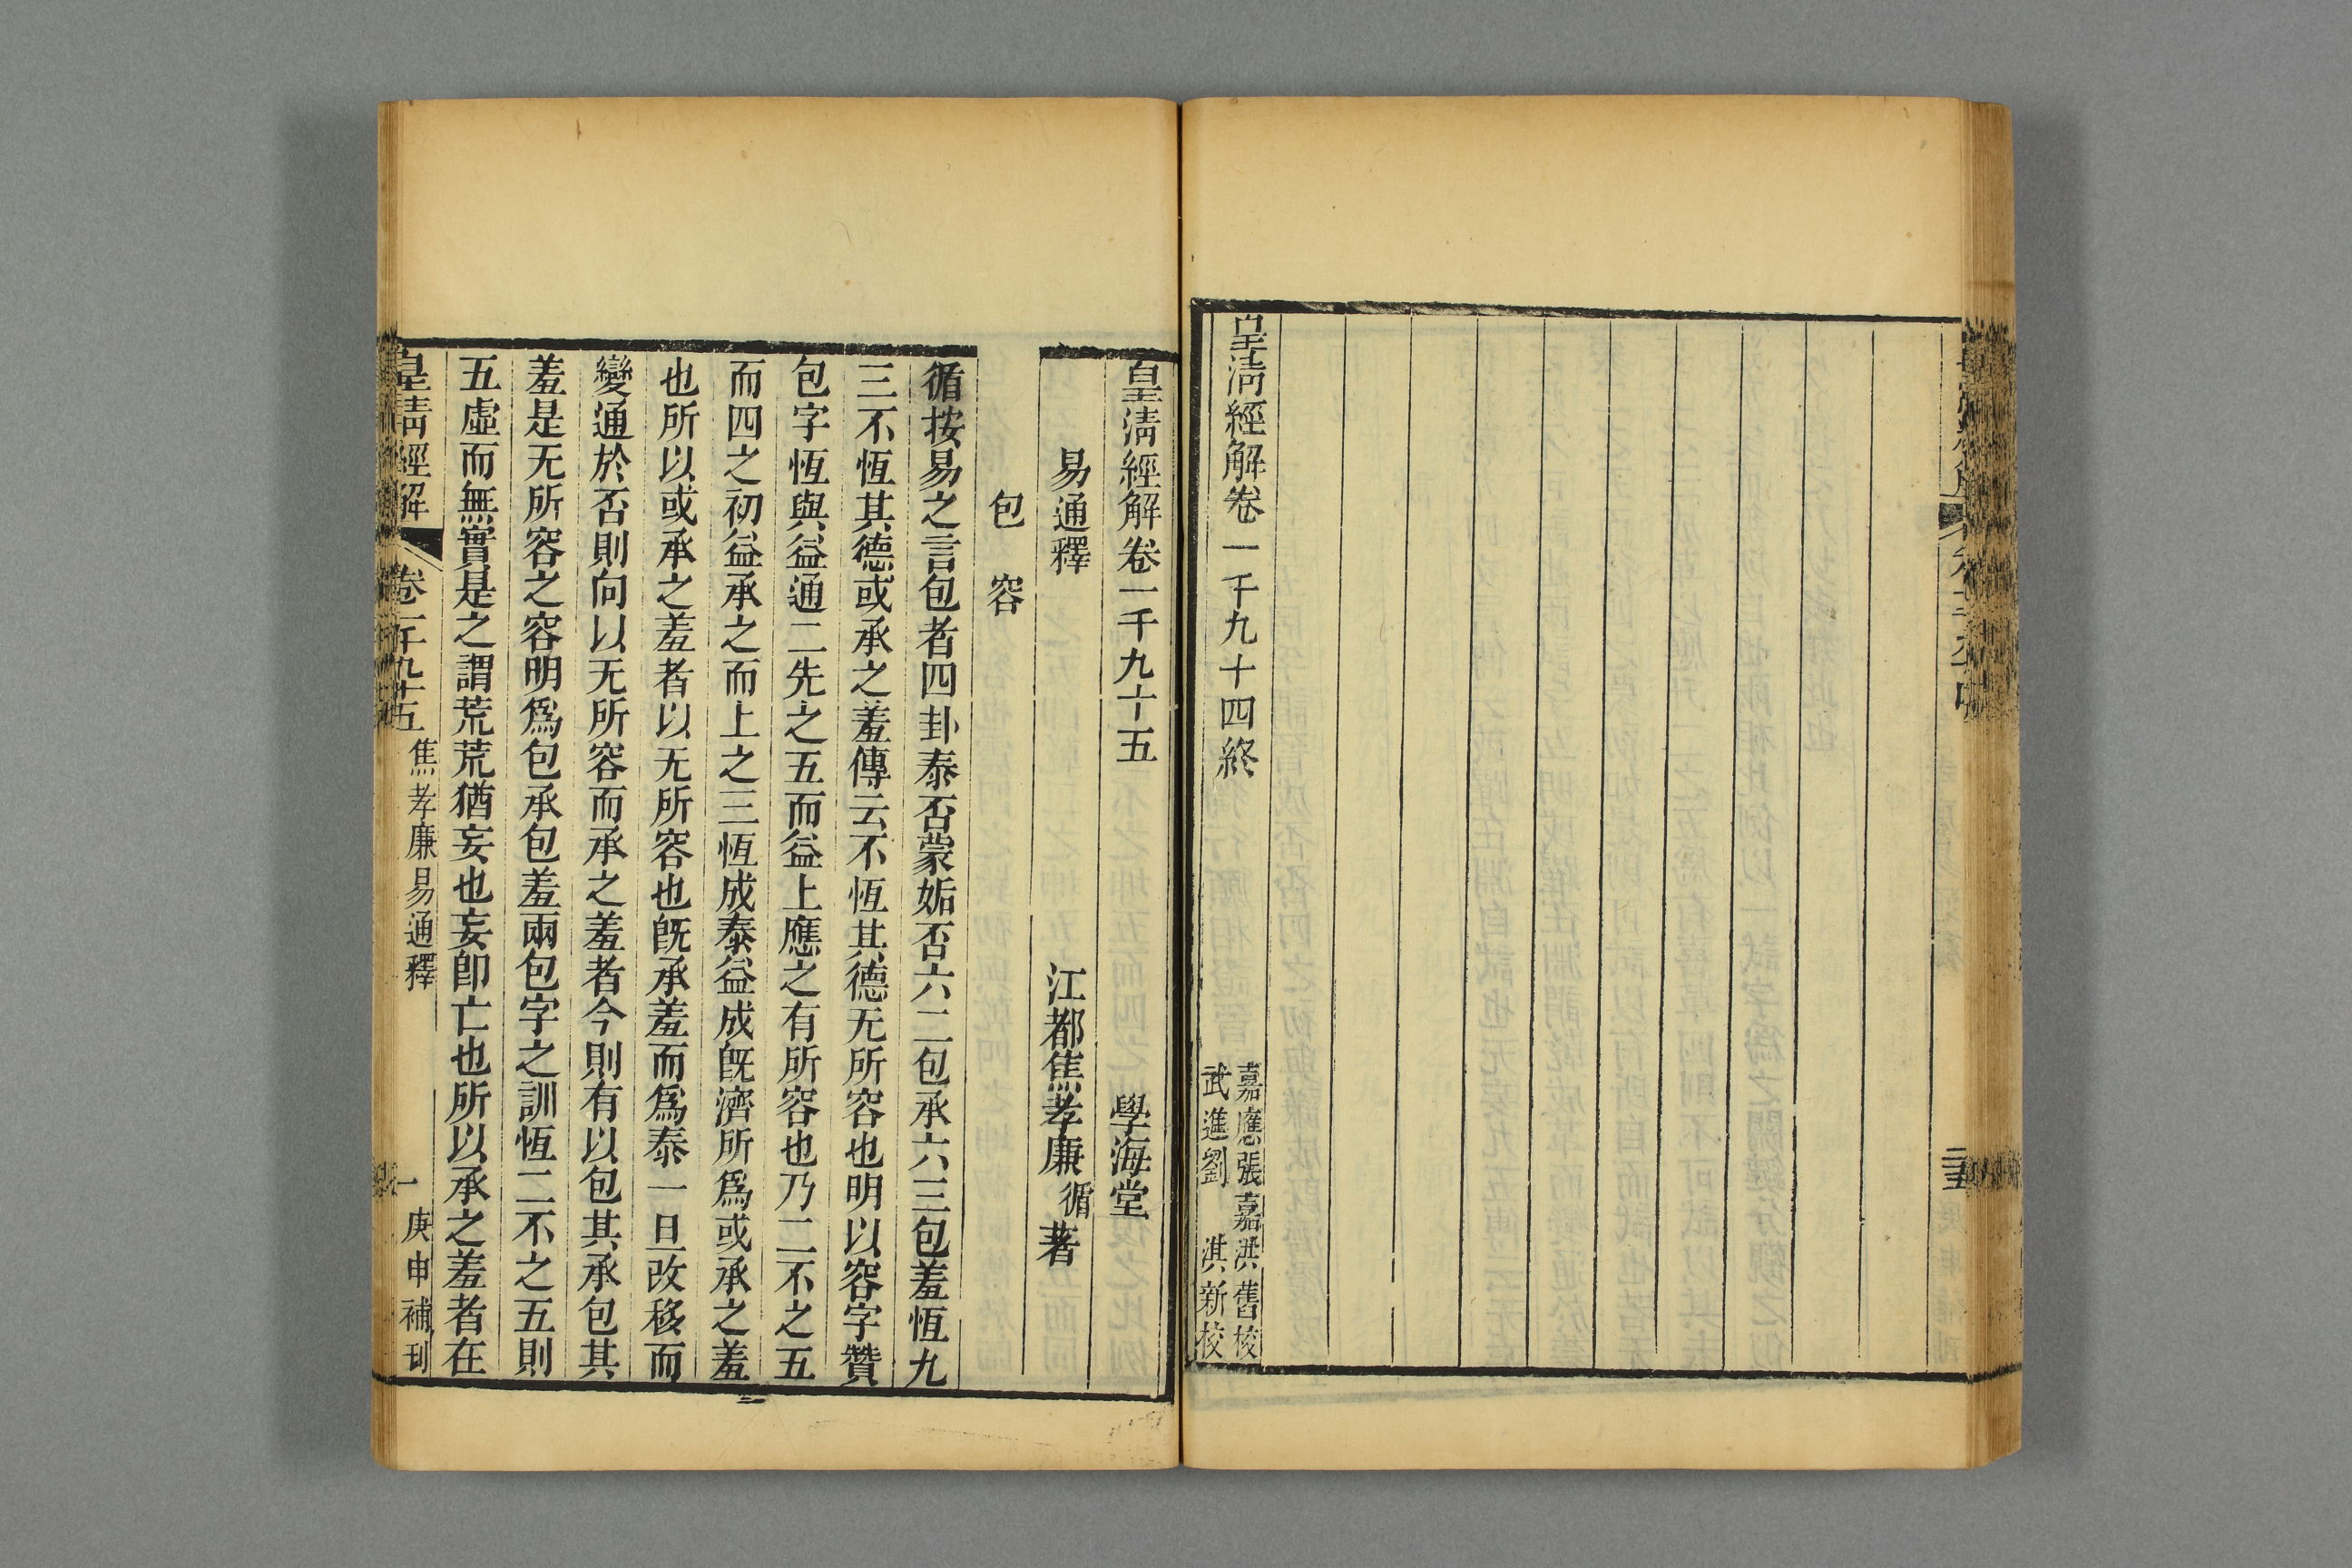 皇清經解卷一千九十四終
嘉應張嘉洪舊校
武進劉 淇新校
皇清經解卷一千九十五 學海堂
易通釋 江都焦孝廉循著
包 容
循按易之言包者四卦泰否蒙姤否六二包承六三包羞恆九
三不恆其德或承之羞傳云不恆其德无所容也明以容字贊
包字恆與益通二先之五而益上應之有所容也乃二不之五
而四之初益承之而上之三恆成泰益成旣濟所爲或承之羞
也所以或承之羞者以无所容也旣承羞而爲泰一旦改移而
變通於否則向以无所容而承之羞者今則有以包其承包其
羞是无所容之容明爲包承包羞兩包字之訓恆二不之五則
五虛而無實是之謂荒荒猶妄也妄卽亡也所以承之羞者在
皇清經解 卷一千九十五 焦孝廉易通釋 一 庚申補刊